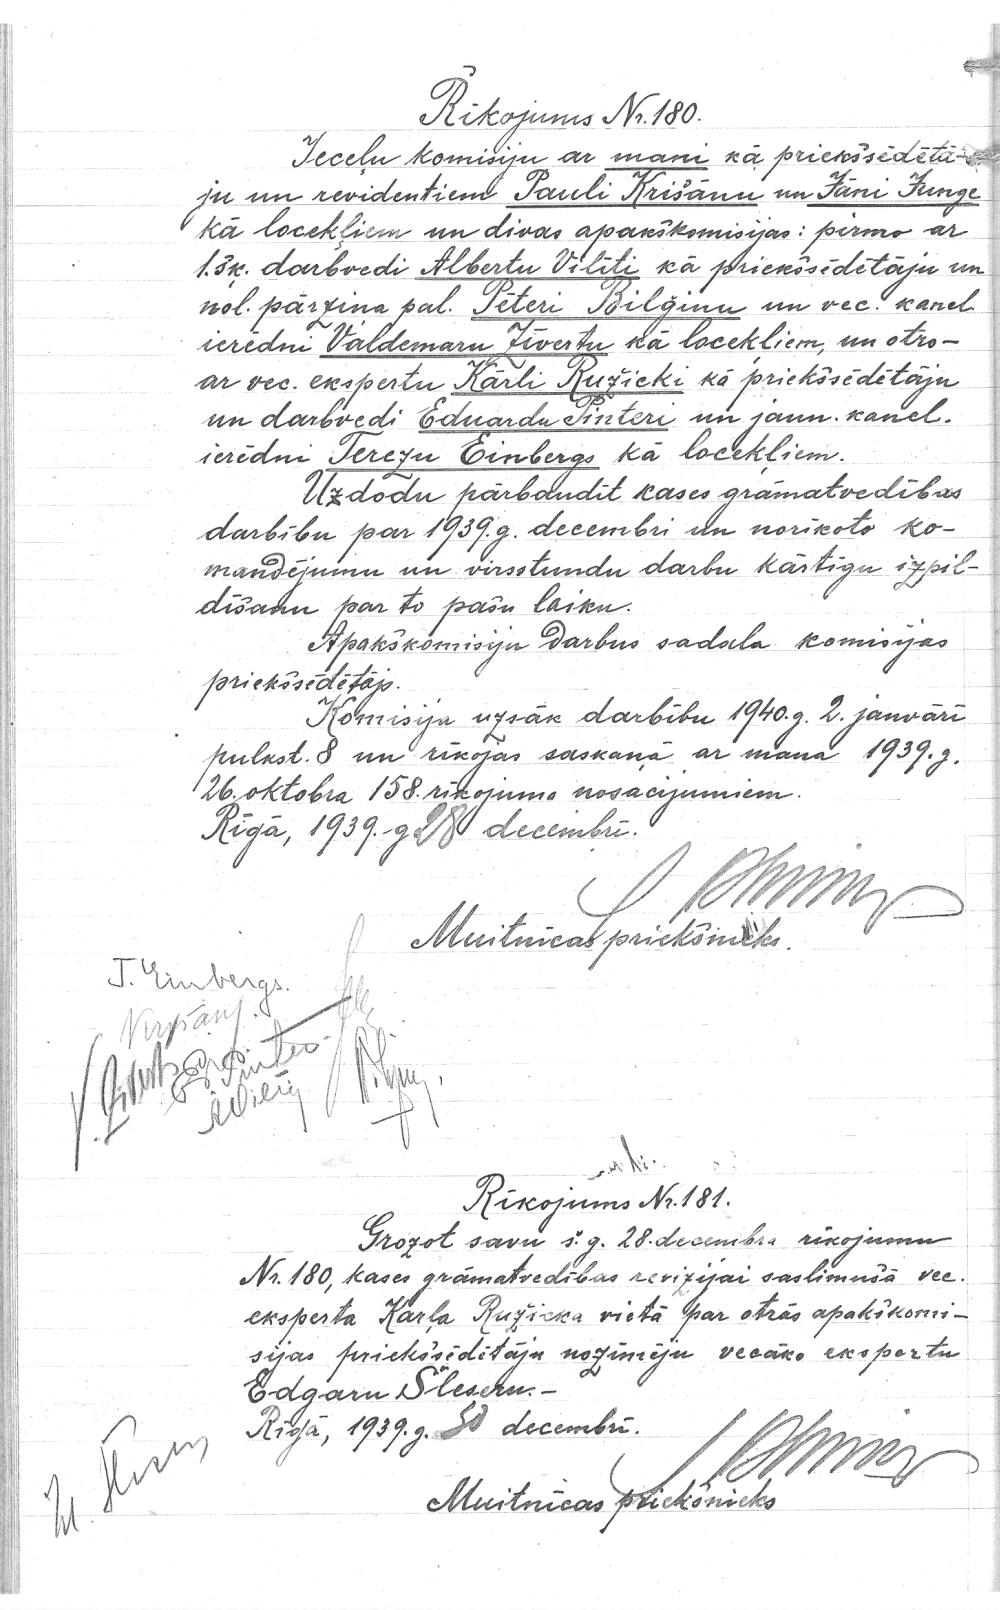 Rīkojums Nr. 180.
Ieceļu komisiju ar mani kā priekšsēdētā-
ju un revidentiem Pauli Krišānu un Jāni Junge
kā locekļiem un divas apakškomisijas: pirmo ar
1. šķ. darbvedi Albertu Vīlīti kā priekšsēdētāju un
nol. pārziņa pal. Pēteri Bilģinu un vec. kancl.
ierēdni Valdemaru Zīvertu kā locekļiem, un otro-
ar vec. ekspertu Kārli Ružicki kā priekšsēdētāju
un darbvedi Eduardu Pinteri un jaun. kancl.
ierēdni Terezu Einbergs kā locekļiem.
Uzdodu pārbaudīt kases grāmatvedības
darbību par 1939. g. decembri un norīkoto ko-
mandējumu un virsstundu darbu kārtīgu izpil-
dīšanu par to pašu laiku.
Apakškomisiju darbus sadala komisijas
priekšsēdētājs.
Komisija uzsāk darbību 1940. g. 2. janvārī
pulkst. 8 un rīkojas saskaņā ar mana 1939. g.
26. oktobra 158. rīkojuma nosacījumiem.
Rīgā, 1939. g 28 decembrī.
Muitnīcas priekšnieks.
T. Einbergs.
Rīkojums Nr. 181.
Grozot savu š. g. 28. decembra rīkojumu
Nr. 180, kases grāmatvedības revīzijai saslimušā vec.
eksperta Kārļa Ružicka vietā par otrās apakškomi-
sijas priekšsēdētāju nozīmēju vecāko ekspertu
Edgaru Šleseru.-
Rīgā, 1939. g. 30 decembrī.
Muitnīcas priekšnieks